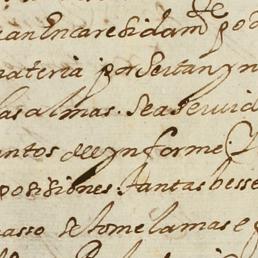 can Encaresidamte pod
materia por ser tan yn
las almas. sea seruid
untos de ynforme. Y
posisiones. tantas bese
casso se tome la mas e